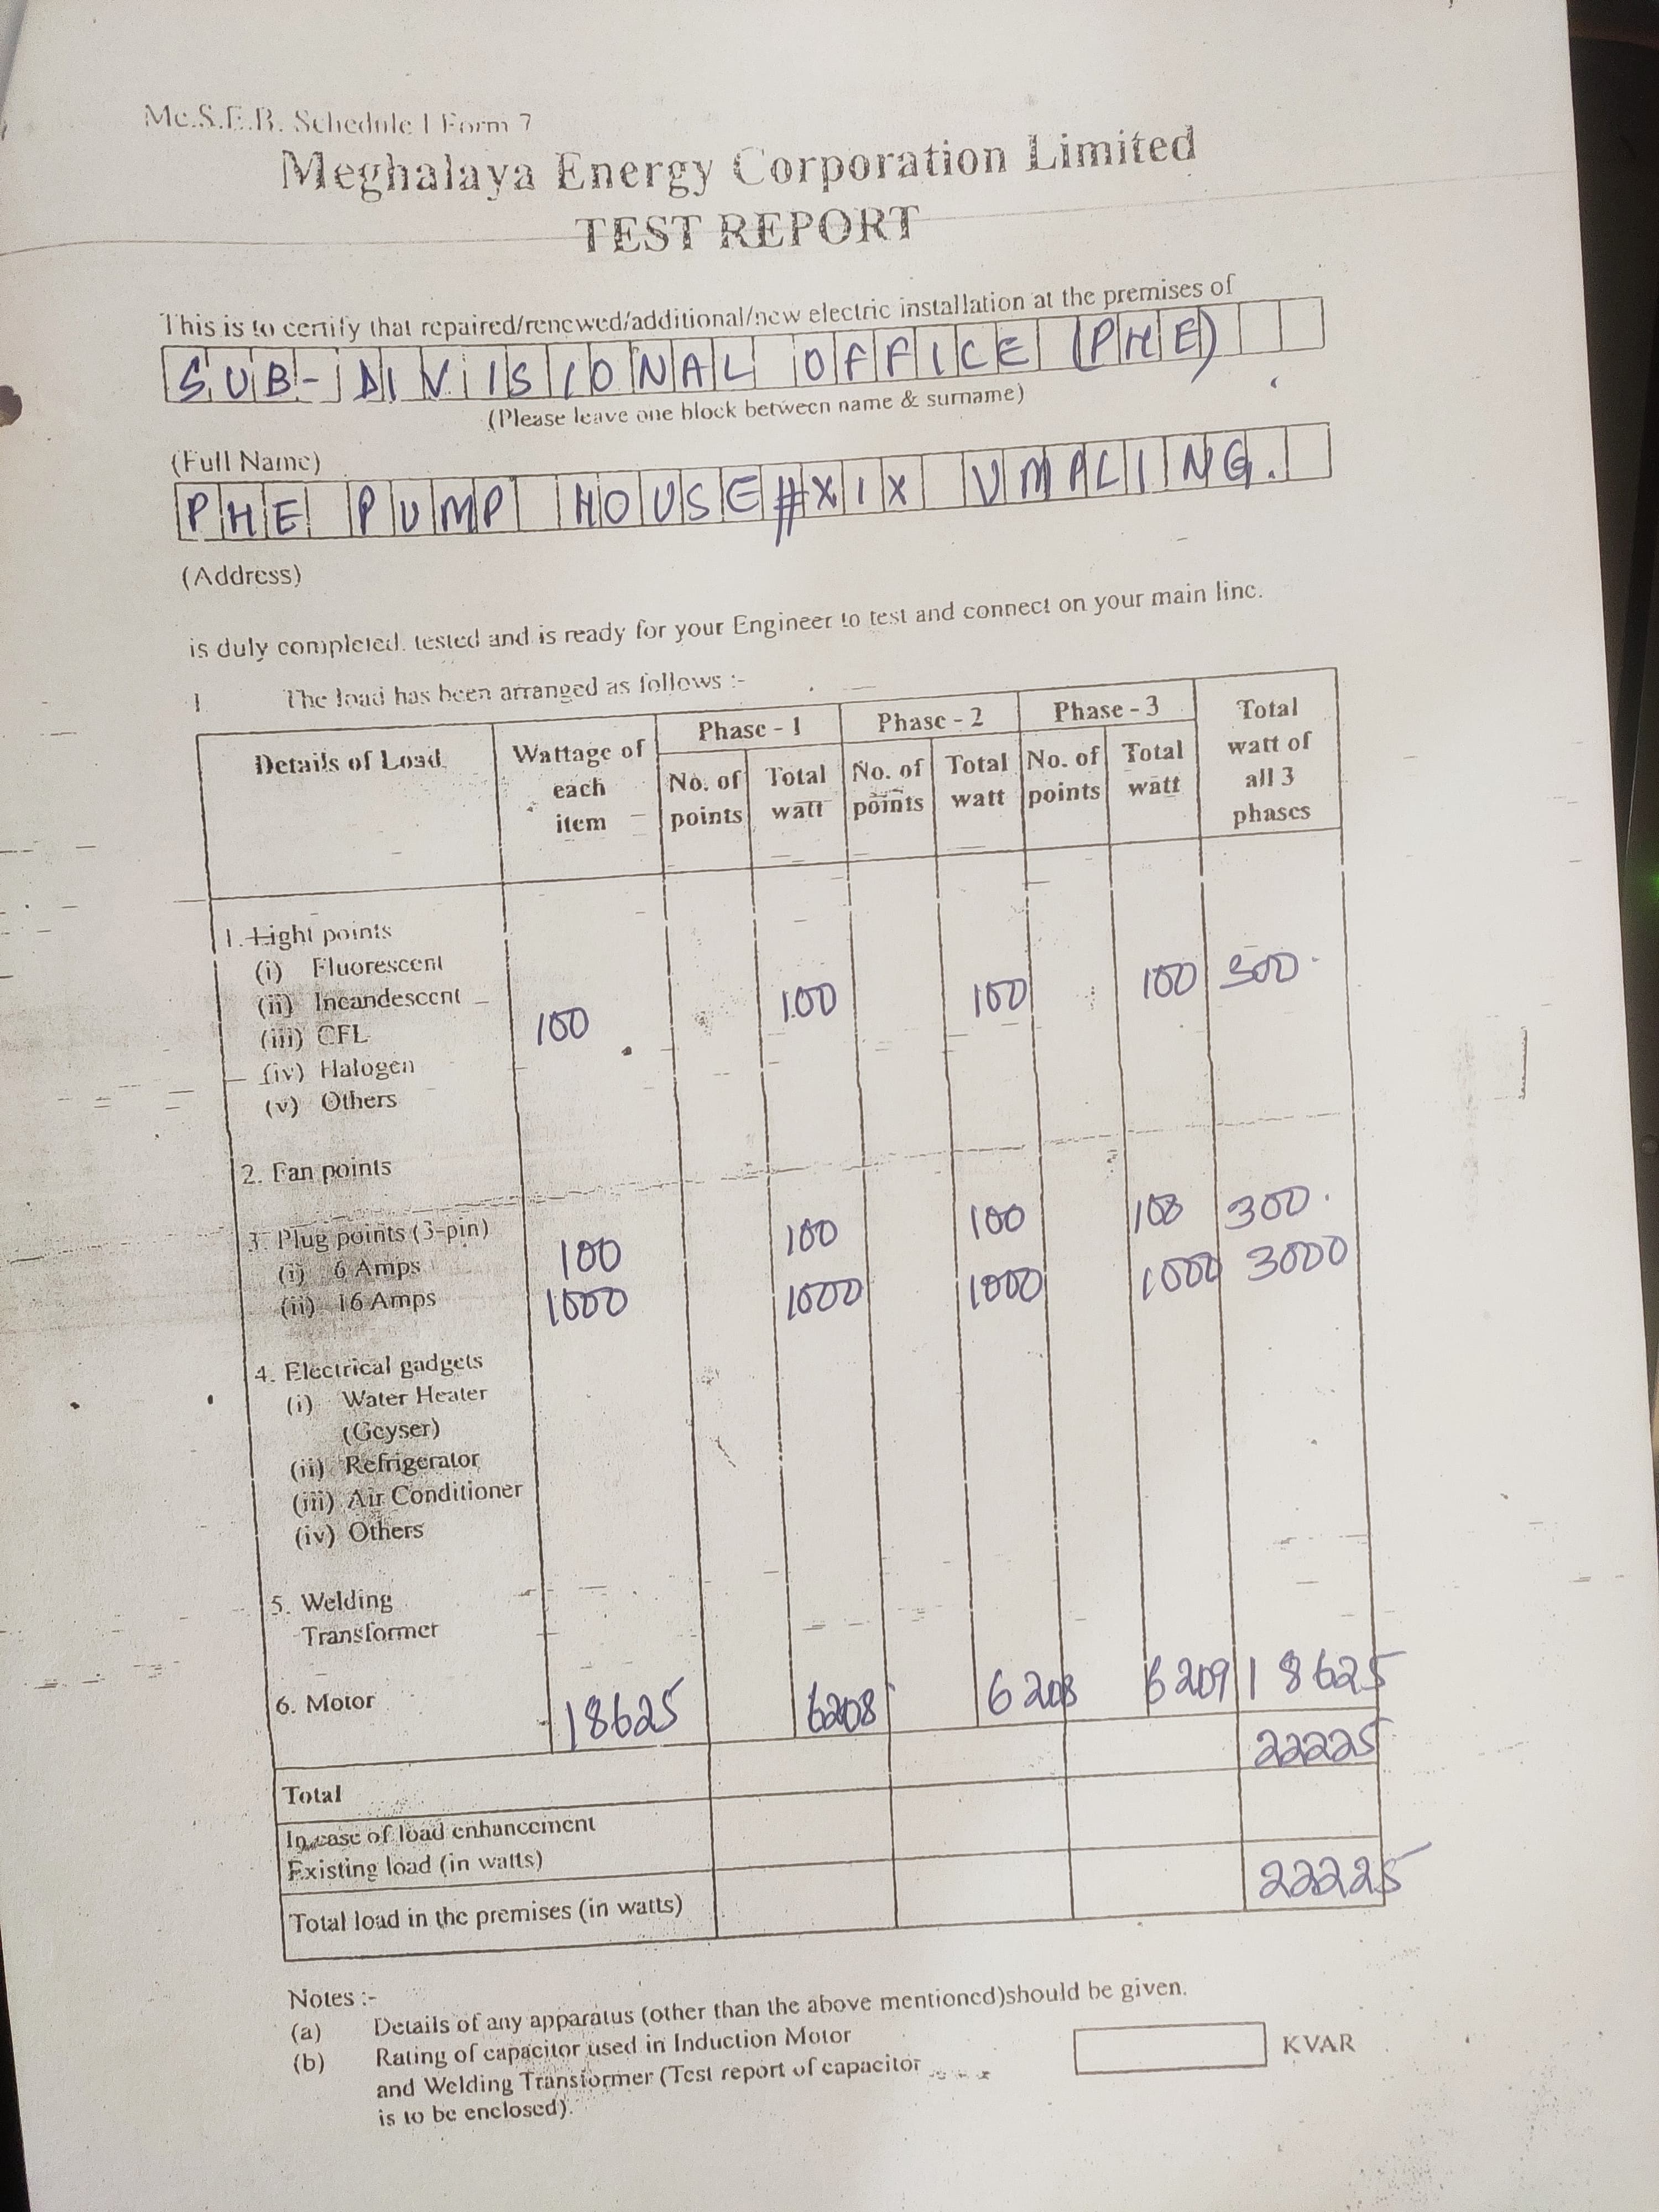 Me.S.E.B. Schedule I Form 7
Meghalaya Energy Corporation Limited
TEST REPORT
This is to certify that repaired/renewed/additional/new electric installation at the premises of
SUB-DIVISIONAL OFFICE (PHE)
(Please leave one block between name & surname)
(Full Name)
PHE PUMP HOUSE#XIX UMPLING.
(Address)
is duly completed. tested and is ready for your Engineer to test and connect on your main line.
1 The load has been arranged as follows :-
Details of Load Wattage of each item Phase - 1 Phase - 2 Phase - 3 Total watt of all 3 phases
No. of points Total watt No. of points Total watt No. of points Total watt
1. Light points
(i) Fluorescent
(ii) Incandescent 100 100 100 300
(iii) CFL 100
(iv) Halogen
(v) Others
2. Fan points
3. Plug points (3-pin)
(i) 6 Amps 100 100 100 100 300
(ii) 16 Amps 1000 1000 1000 1000 3000
4. Electrical gadgets
(i) Water Heater
(Geyser)
(ii) Refrigerator
(iii) Air Conditioner
(iv) Others
5. Welding
Transformer
6. Motor 18625 6208 6208 6209 18625
Total 22225
In case of load enhancement
Existing load (in watts)
Total load in the premises (in watts) 22225
Notes :-
(a) Details of any apparatus (other than the above mentioned)should be given.
(b) Rating of capacitor used in Induction Motor
and Welding Transformer (Test report of capacitor KVAR
is to be enclosed).